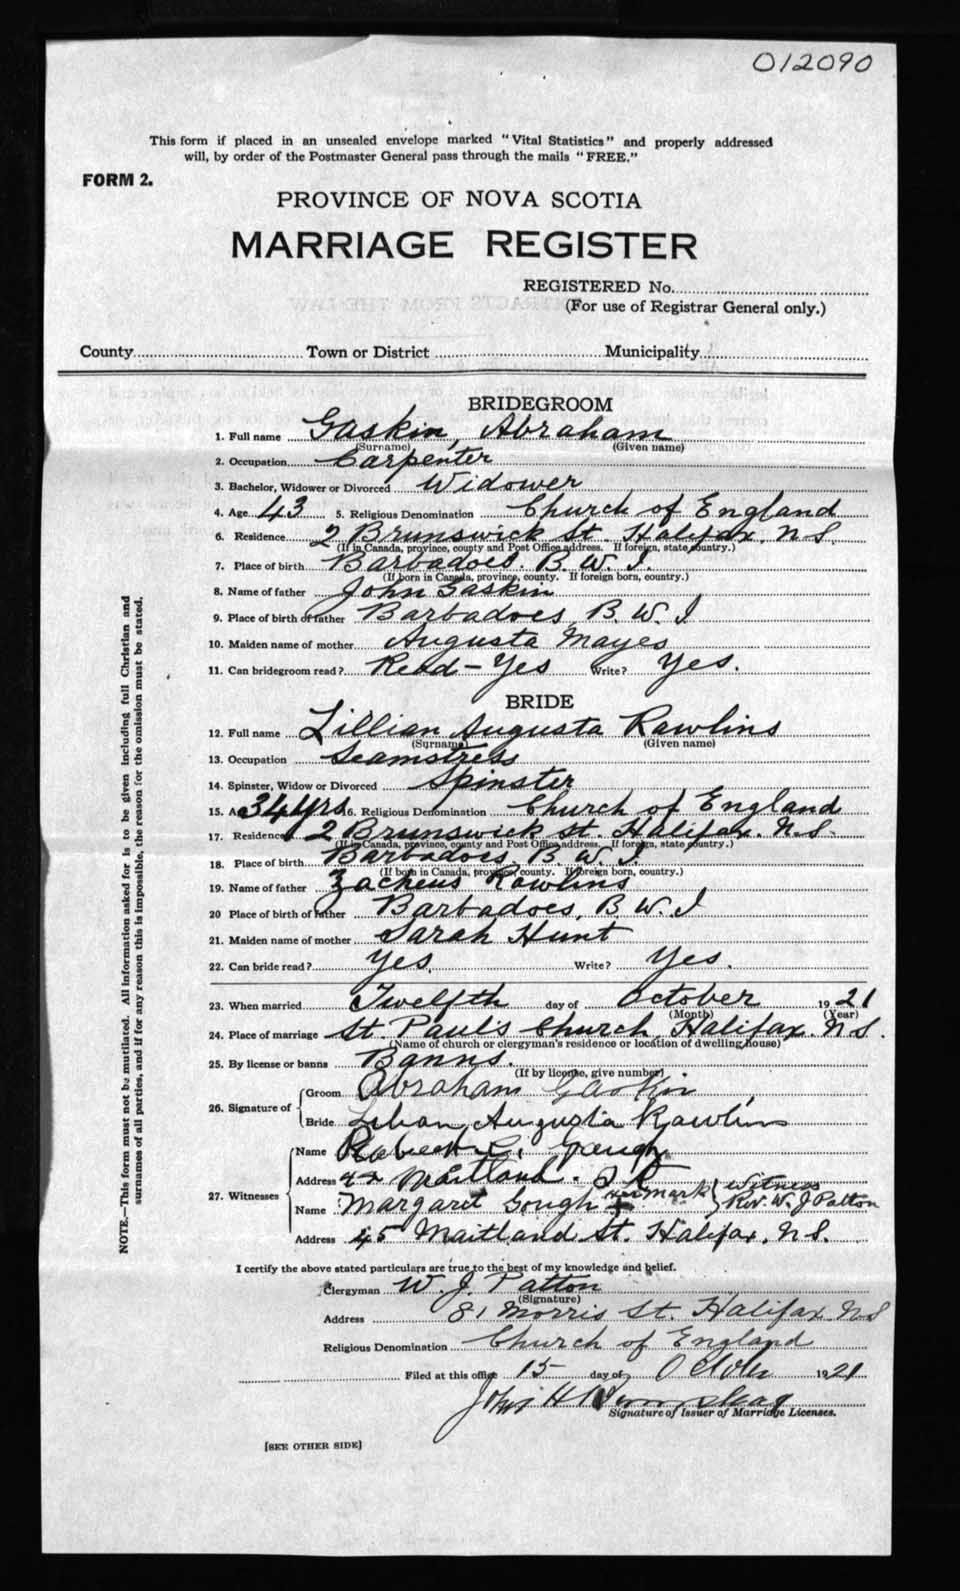 012090
This form if placed in an unsealed envelope marked "Vital Statistics" and properly addressed
will, by order of the Postmaster General pass through the mails "FREE."
FORM 2.
PROVINCE OF NOVA SCOTIA
MARRIAGE REGISTER
REGISTERED No.
(For use of Registrar General only.)
County Town or District Municipality
BRIDEGROOM
1. Full name Gaskin, Abraham
(Surname) (Given name)
2. Occupation Carpenter
3. Bachelor, Widower or Divorced Widower
4. Age 43 5. Religious Denomination Church of England
6. Residence 2 Brunswick St. Halifax. N.S.
(If in Canada, province, county and Post Office address. If foreign, state country.)
7. Place of birth Barbadoes. B. W. I.
(If born in Canada, province, county. If foreign born, country.)
8. Name of father John Gaskin
9. Place of birth of father Barbadoes B. W. I
10. Maiden name of mother Augusta Mayes
11. Can bridegroom read? Read - Yes Write? Yes.
BRIDE
12. Full name Lillian Augusta Rawlins
(Surname) (Given name)
13. Occupation Seamstress
14. Spinster, Widow or Divorced Spinster
15. A 34 yrs 16. Religious Denomination Church of England
17. Residence 2 Brunswick St. Halifax. N.S.
(If in Canada, province, county and Post Office address. If foreign, state country.)
18. Place of birth Barbadoes, B. W. I.
(If born in Canada, province, county. If foreign born, country.)
19. Name of father Zacheus Rawlins
20 Place of birth of father Barbadoes, B. W. I
21. Maiden name of mother Sarah Hunt
22. Can bride read? Yes. Write? Yes.
23. When married Twelfth day of October 1921
(Month) (Year)
24. Place of marriage St. Paul's Church Halifax. N.S.
(Name of church or clergyman's residence or location of dwelling house)
25. By license or banns Banns.
(If by license, give number)
26. Signature of
Groom Abraham Gaskin
Bride Lilian Augusta Rawlins
27. Witnesses
Name Gough
Address Maitland. St
Name Margaret Gough her mark witness Rev. W. J Patton
Address 45 Maitland St. Halifax. N.S.
I certify the above stated particulars are true to the best of my knowledge and belief.
Clergyman W. J. Patton
(Signature)
Address 81 Morris St. Halifax N.S
Religious Denomination Church of England
Filed at this office 15 day of October 1921
John H
Signature of Issuer of Marriage Licenses.
[SEE OTHER SIDE]
NOTE.—This form must not be mutilated. All information asked for is to be given including full Christian and
surnames of all parties, and if for any reason this is impossible, the reason for the omission must be stated.